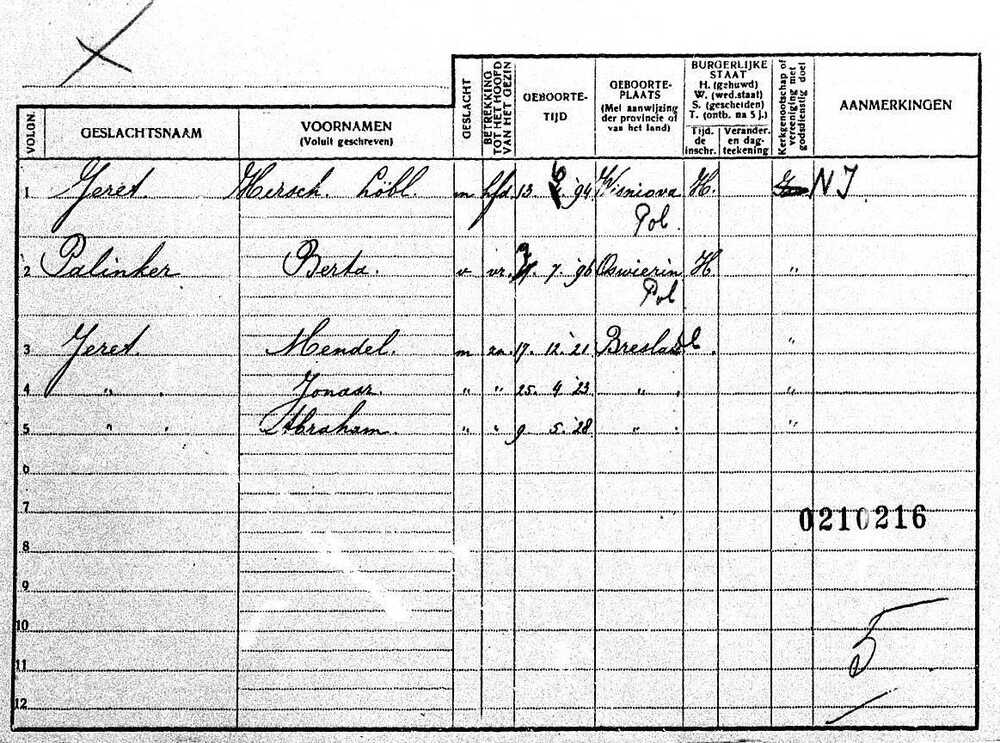 VOLGN.
GESLACHTSNAAM
VOORNAMEN
(Voluit geschreven)
GESLACHT
BETREKKING TOT HET HOOFD VAN HET GEZIN
GEBOORTE-
TIJD
GEBOORTE-
PLAATS
(Met aanwijzing
der provincie of
van het land)
BURGERLIJKE
STAAT
H. (gehuwd)
W. (wed.staat)
S. (gescheiden)
T. (ontb. na 5 j.)
Tijd.
de
inschr.
Verander.
en dag-
teekening
Kerkgenootschap of vereeniging met godsdienstig doel
AANMERKINGEN
1 Jeret. Hersch. Löbl. m hfd 13. 6. 94 Wisniova H. NI
Pol.
2 Palinker Berta. v vr. 7. 96 Oswierin H. "
Pol
3 Jeret. Mendel. m zn. 17. 12. 21 Breslau . "
4 " . Jonasz. " " 25. 4 23 " . "
5 " . Abraham. " " 9 5. 28 " . "
6
7
0210216
8
9
10
11
5
12